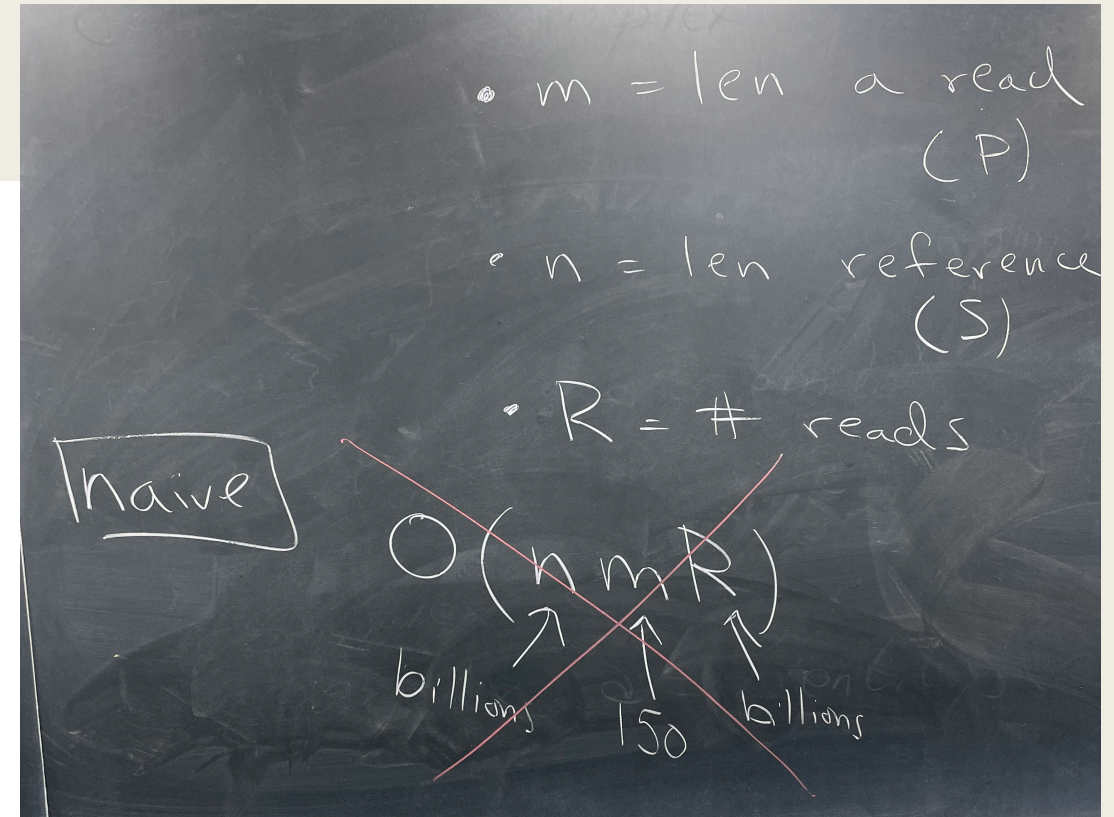 • m = len a read
(P)
• n = len reference
(S)
• R = # reads
naïve
O(nmR)
billions 150 billions